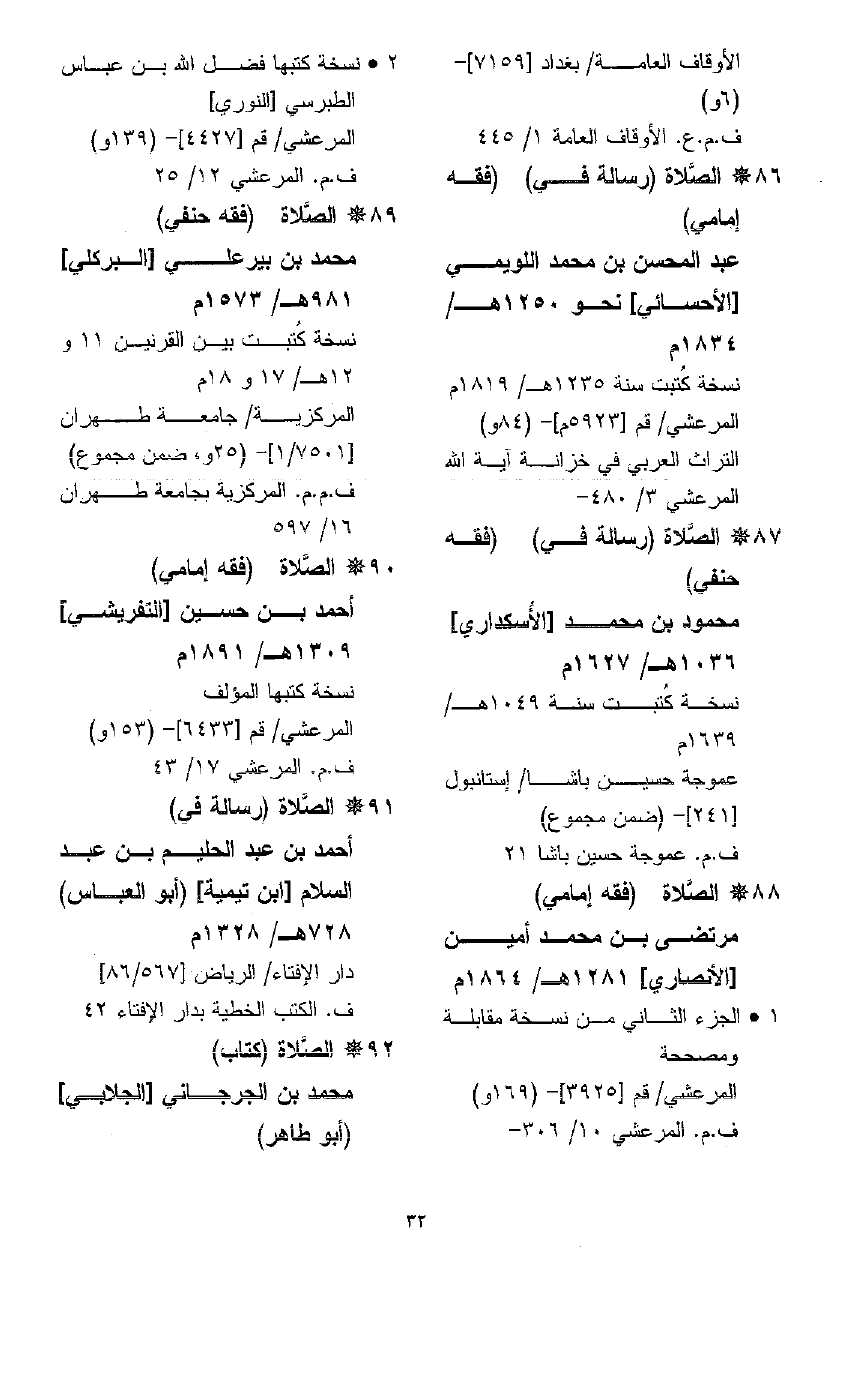 الأوقاف العامة/ بغداد [٧١٥٩]-
(٦و)
ف.م.ع. الأوقاف العامة ١/ ٤٤٥
٨٦* الصَّلاة (رسالة في) (فقه
إمامي)
عبد المحسن بن محمد اللويمي
[الأحسائي] نحو ١٢٥٠هـ/
١٨٣٤م
نسخة كُتبت سنة ١٢٣٥هـ/ ١٨١٩م
المرعشي/ قم [٥٩٢٣م]- (٨٤و)
التراث العربي في خزانة آية الله
المرعشي ٣/ ٤٨٠-
٨٧* الصَّلاة (رسالة في) (فقه
حنفي)
محمود بن محمد [الأسكداري]
١٠٣٦هـ/ ١٦٢٧م
نسخة كُتبت سنة ١٠٤٩هـ/
١٦٣٩م
عموجة حسين باشا/ إستانبول
[٢٤١]- (ضمن مجموع)
ف.م. عموجة حسين باشا ٢١
٨٨* الصَّلاة (فقه إمامي)
مرتضى بن محمد أمين
[الأنصاري] ١٢٨١هـ/ ١٨٦٤م
١ • الجزء الثاني من نسخة مقابلة
ومصححة
المرعشي/ قم [٣٩٢٥]- (١٦٩و)
ف.م. المرعشي ١٠/ ٣٠٦-
٢ • نسخة كتبها فضل الله بن عباس
الطبرسي [النوري]
المرعشي/ قم [٤٤٢٧]- (١٣٩و)
ف.م. المرعشي ١٢/ ٢٥
٨٩* الصَّلاة (فقه حنفي)
محمد بن بيرعلي [البركلي]
٩٨١هـ/ ١٥٧٣م
نسخة كُتبت بين القرنين ١١ و
١٢هـ/ ١٧ و ١٨م
المركزية/ جامعة طهران
[١/٧٥٠١]- (٢٥و، ضمن مجموع)
ف.م.م. المركزية بجامعة طهران
١٦/ ٥٩٧
٩٠* الصَّلاة (فقه إمامي)
أحمد بن حسين [التفريشي]
١٣٠٩هـ/ ١٨٩١م
نسخة كتبها المؤلف
المرعشي/ قم [٦٤٣٣]- (١٥٣و)
ف.م. المرعشي ١٧/ ٤٣
٩١* الصَّلاة (رسالة في)
أحمد بن عبد الحليم بن عبد
السلام [ابن تيمية] (أبو العباس)
٧٢٨هـ/ ١٣٢٨م
دار الإفتاء/ الرياض [٨٦/٥٦٧]
ف. الكتب الخطية بدار الإفتاء ٤٢
٩٢* الصَّلاة (كتاب)
محمد بن الجرجاني [الجلابي]
(أبو طاهر)
٣٢